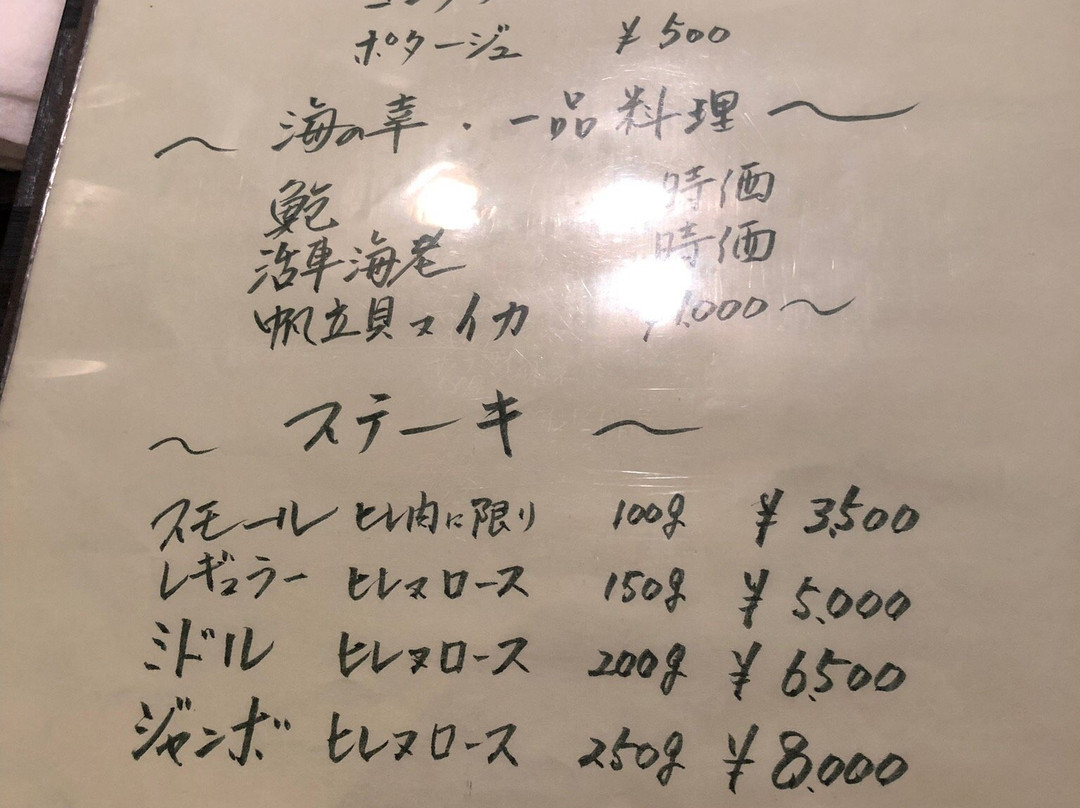 ポタージュ ¥500
～ 海の幸・一品料理 ～
鮑 時価
活車海老 時価
帆立貝又イカ ¥1,000～
～ ステーキ ～
スモール ヒレ肉に限り 100g ¥3,500
レギュラー ヒレ又ロース 150g ¥5,000
ミドル ヒレ又ロース 200g ¥6,500
ジャンボ ヒレ又ロース 250g ¥8,000